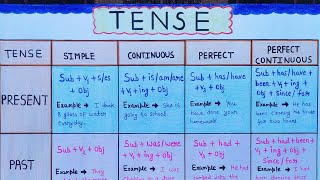 TENSE
TENSE
SIMPLE
CONTINUOUS
PERFECT
PERFECT
CONTINUOUS
PRESENT
Sub + V₁ + s/es
+ Obj
Example → I drink
glass of water
everyday.
Sub + is/am/are
+ V₁ + ing + Obj
Example → She is
going to school.
Sub + has/have
+ V₃ + Obj
Example → You
have done your
homework.
Sub + has/have +
been + V₁ + ing +
Obj + since/for
Example → He has
been
for two hours
PAST
Sub + V₂ + Obj
Example → They
Sub + was/were
+ V₁ + ing + Obj
Example → I was
Sub + had +
V₃ + Obj
Example → He had
Sub + had + been +
V₁ + ing + Obj +
since/for
Example → I